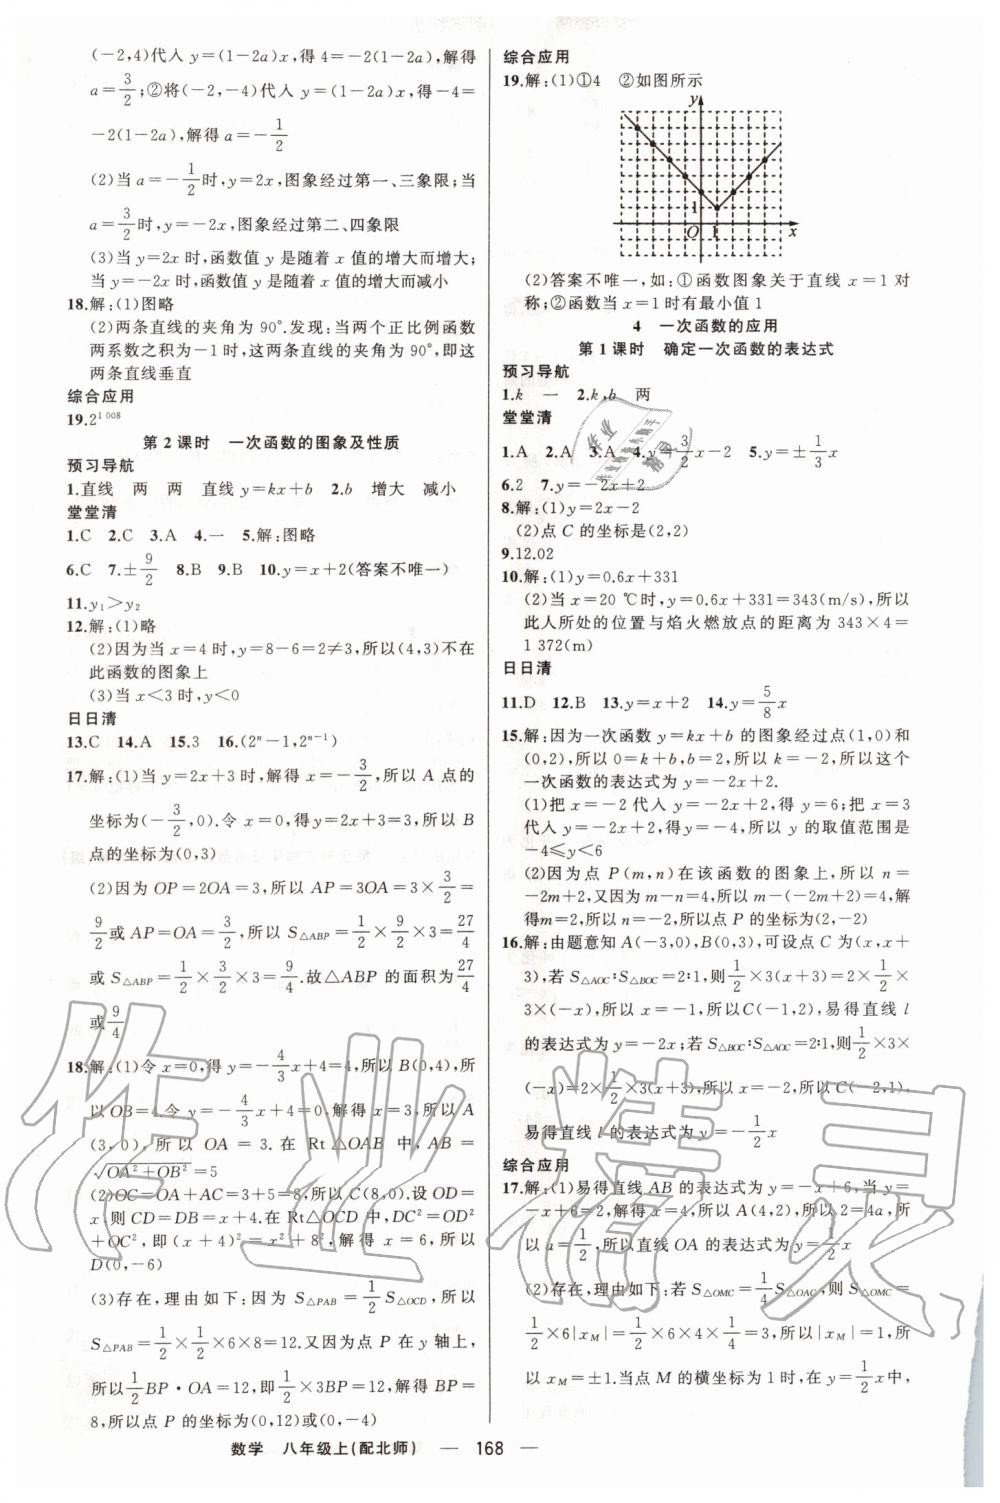 (-2,4)代入 y=(1-2a)x,得 4=-2(1-2a),解得
a=3/2;②将(-2,-4)代入 y=(1-2a)x,得-4=
-2(1-2a),解得 a=-1/2
(2)当 a=-1/2时,y=2x,图象经过第一、三象限;当
a=3/2时,y=-2x,图象经过第二、四象限
(3)当 y=2x 时,函数值 y 是随着 x 值的增大而增大;
当 y=-2x 时,函数值 y 是随着 x 值的增大而减小
18.解:(1)图略
(2)两条直线的夹角为 90°.发现:当两个正比例函数
两系数之积为-1 时,这两条直线的夹角为 90°,即这
两条直线垂直
综合应用
19.2^1 008
第 2 课时 一次函数的图象及性质
预习导航
1.直线 两 两 直线 y=kx+b 2.b 增大 减小
堂堂清
1.C 2.C 3.A 4.一 5.解:图略
6.C 7.±9/2 8.B 9.B 10.y=x+2(答案不唯一)
11.y₁>y₂
12.解:(1)略
(2)因为当 x=4 时,y=8-6=2≠3,所以(4,3)不在
此函数的图象上
(3)当 x<3 时,y<0
日日清
13.C 14.A 15.3 16.(2ⁿ-1,2ⁿ⁻¹)
17.解:(1)当 y=2x+3 时,解得 x=-3/2,所以 A 点的
坐标为(-3/2,0).令 x=0,得 y=2x+3=3,所以 B
点的坐标为(0,3)
(2)因为 OP=2OA=3,所以 AP=3OA=3×3/2=
9/2或 AP=OA=3/2,所以 S△ABP=1/2×9/2×3=27/4
或 S△ABP=1/2×3/2×3=9/4.故△ABP 的面积为27/4
或9/4
18.解:(1)令 x=0,得 y=-4/3x+4=4,所以 B(0,4),所
以 OB=4.令 y=-4/3x+4=0,解得 x=3,所以 A
(3,0),所以 OA=3.在 Rt△OAB 中,AB=
√(OA²+OB²)=5
(2)OC=OA+AC=3+5=8,所以 C(8,0).设 OD=
x,则 CD=DB=x+4.在Rt△OCD 中,DC²=OD²
+OC²,即(x+4)²=x²+8²,解得 x=6,所以
D(0,-6)
(3)存在,理由如下:因为 S△PAB=1/2S△OCD,所以
S△PAB=1/2×1/2×6×8=12.又因为点 P 在 y 轴上,
所以1/2BP·OA=12,即1/2×3BP=12,解得 BP=
8,所以点 P 的坐标为(0,12)或(0,-4)
综合应用
19.解:(1)①4 ②如图所示
y
1
O 1 x
(2)答案不唯一,如:①函数图象关于直线 x=1 对
称;②函数当 x=1 时有最小值 1
4 一次函数的应用
第 1 课时 确定一次函数的表达式
预习导航
1.k 一 2.k,b 两
堂堂清
1.A 2.A 3.A 4.y=3/2x-2 5.y=±1/3x
6.2 7.y=-2x+2
8.解:(1)y=2x-2
(2)点 C 的坐标是(2,2)
9.12.02
10.解:(1)y=0.6x+331
(2)当 x=20 ℃时,y=0.6x+331=343(m/s),所以
此人所处的位置与焰火燃放点的距离为 343×4=
1 372(m)
日日清
11.D 12.B 13.y=x+2 14.y=5/8x
15.解:因为一次函数 y=kx+b 的图象经过点(1,0)和
(0,2),所以 0=k+b,b=2,所以 k=-2,所以这个
一次函数的表达式为 y=-2x+2.
(1)把 x=-2 代入 y=-2x+2,得 y=6;把 x=3
代入 y=-2x+2,得 y=-4,所以 y 的取值范围是
-4≤y<6
(2)因为点 P(m,n)在该函数的图象上,所以 n=
-2m+2,又因为 m-n=4,所以 m-(-2m+2)=4,解
得m=2,所以 n=-2,所以点 P 的坐标为(2,-2)
16.解:由题意知 A(-3,0),B(0,3),可设点 C 为(x,x+
3),若 S△AOC:S△BOC=2:1,则1/2×3(x+3)=2×1/2×
3×(-x),所以 x=-1,所以C(-1,2),易得直线 l
的表达式为 y=-2x;若 S△BOC:S△AOC=2:1,则1/2×3×
(-x)=2×1/2×3(x+3),所以 x=-2,所以 C(-2,1),
易得直线 l 的表达式为 y=-1/2x
综合应用
17.解:(1)易得直线 AB 的表达式为 y=-x+6,当 y=
-x+6=2,解得 x=4,所以 A(4,2),所以 2=4a,所
以 a=1/2,所以直线 OA 的表达式为 y=1/2x
(2)存在,理由如下:若 S△OMC=1/4S△OAC,则 S△OMC=
1/2×6|xM|=1/2×6×4×1/4=3,所以|xM|=1,所
以 xM=±1.当点 M 的横坐标为 1 时,在 y=1/2x中,
数学 八年级上(配北师) — 168 —
作业精灵